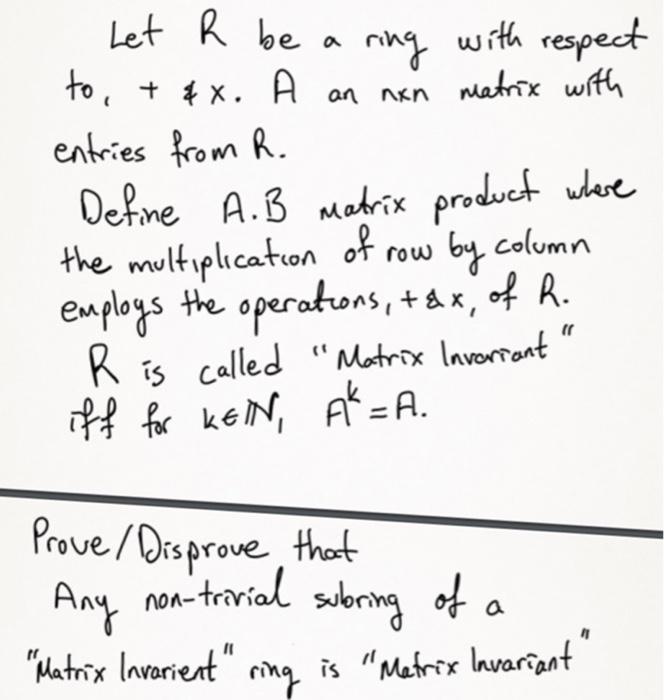 Let R be a ring with respect
to, + & x. A an nxn matrix with
entries from R.
Define A.B matrix product where
the multiplication of row by column
employs the operations, + & x, of R.
R is called "Matrix Invariant"
iff for k∈ℕ, A^k = A.
Prove/Disprove that
Any non-trivial subring of a
"Matrix Invarient" ring is "Matrix Invariant"